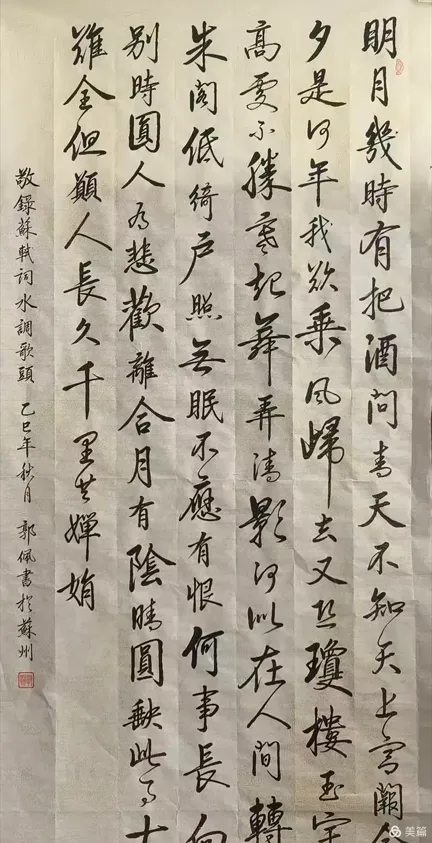 明月幾時有把酒問青天不知天上宮闕今
夕是何年我欲乘風歸去又恐瓊樓玉宇
高處不勝寒起舞弄清影何似在人間轉
朱閣低綺戶照無眠不應有恨何事長向
别時圓人有悲歡離合月有陰晴圓缺此事古
難全但願人長久千里共嬋娟
敬錄蘇軾詞水調歌頭 乙巳年秋月 郭佩書於蘇州
美篇